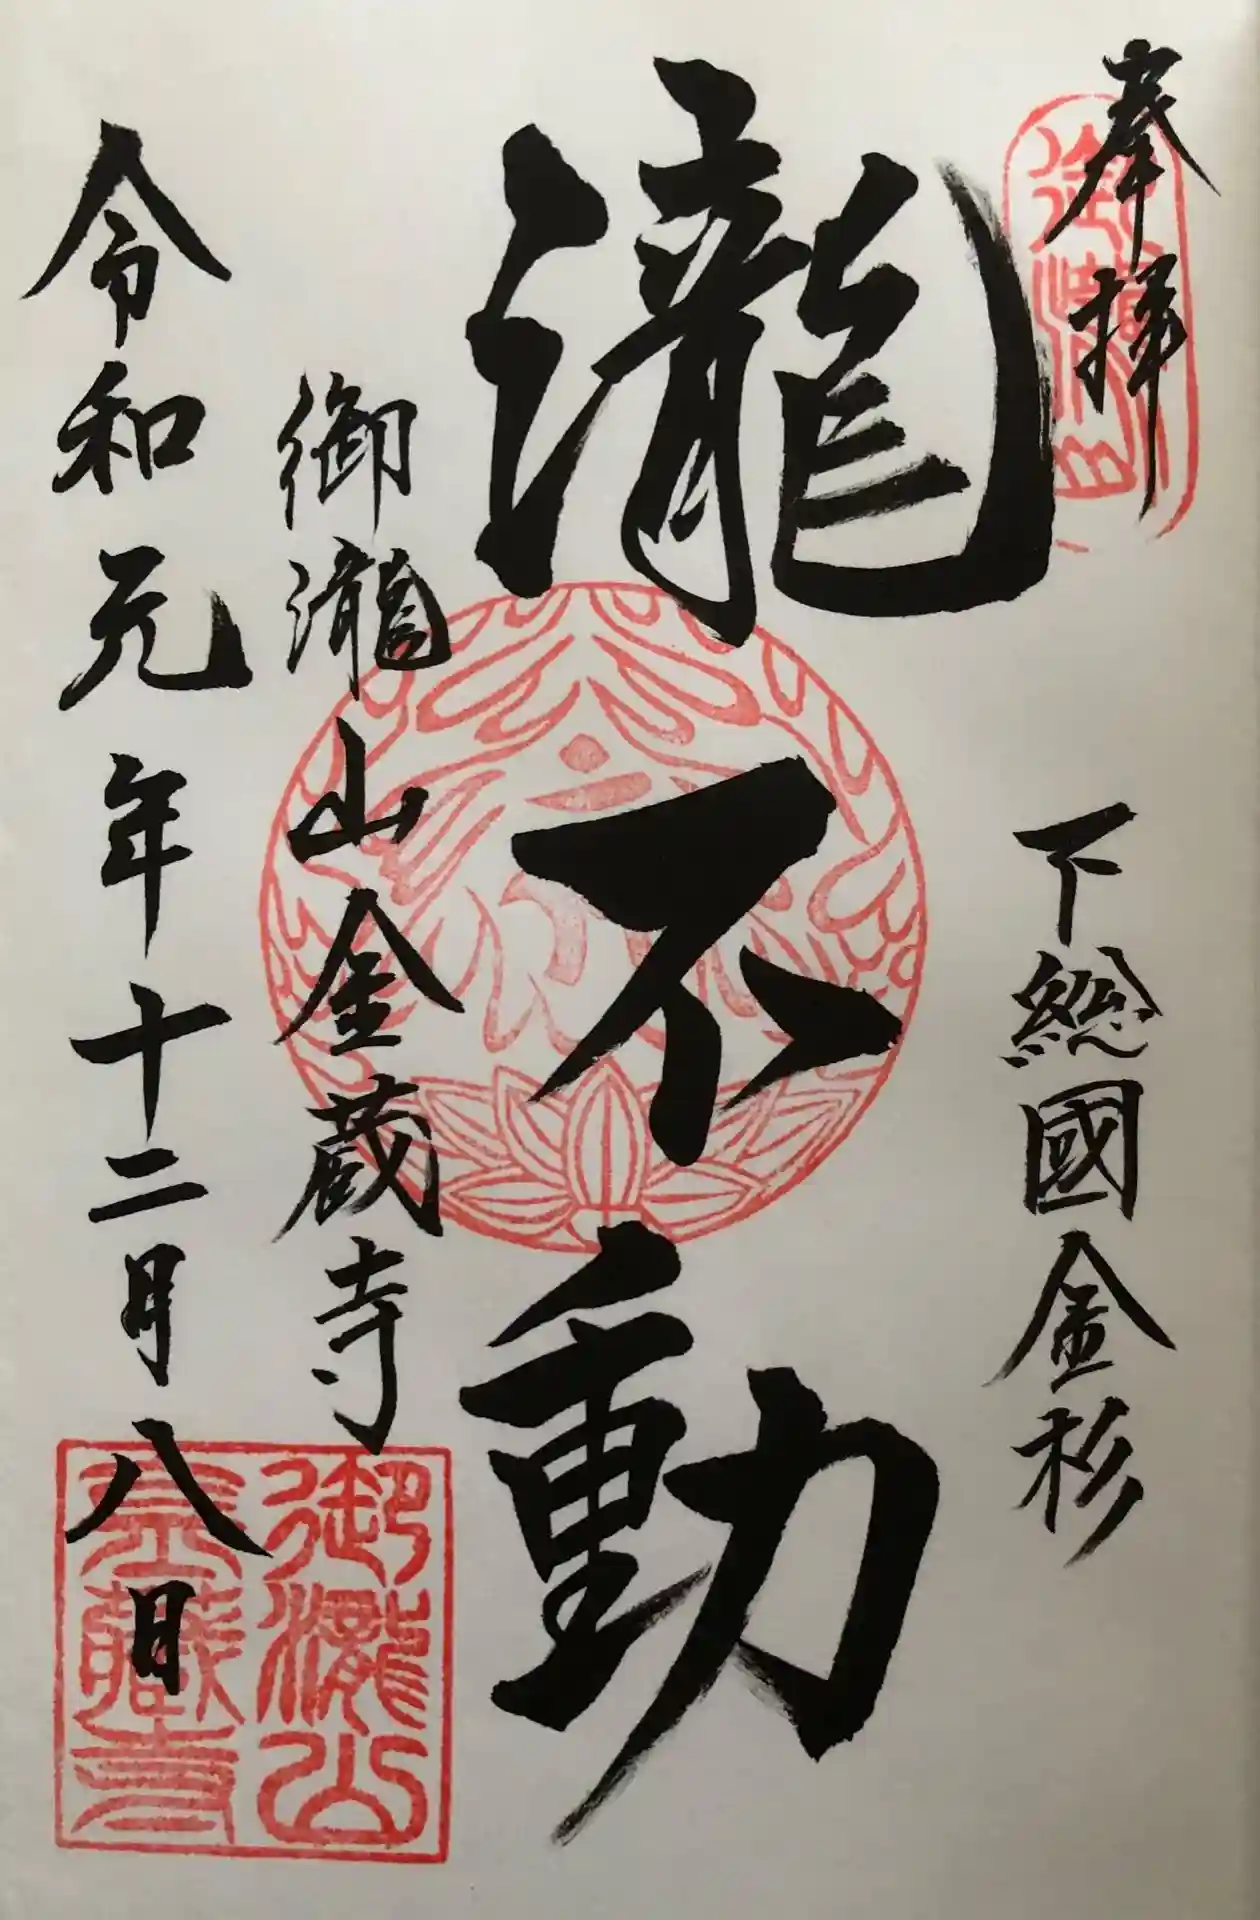 奉拝
下総國金杉
瀧不動
御瀧山金蔵寺
令和元年十二月八日
御瀧山
金藏寺